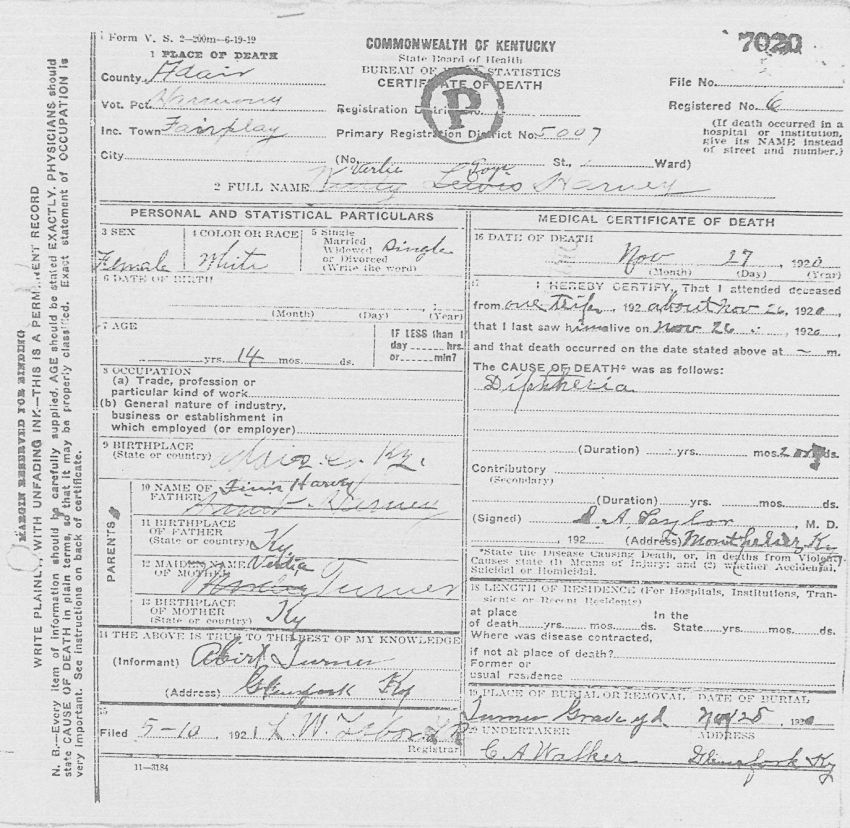 Form V. S. 2—200m—6-19-19
1 PLACE OF DEATH
County Adair
Vot. Pct. Harmony
Inc. Town Fairplay
City
COMMONWEALTH OF KENTUCKY
State Board of Health
BUREAU OF VITAL STATISTICS
CERTIFICATE OF DEATH
P
Registration District No.
Primary Registration District No. 5007
7020
File No.
Registered No. 6
(If death occurred in a
hospital or institution,
give its NAME instead
of street and number.)
(No. St., Ward)
Verlie
2 FULL NAME Lewis Harvey
PERSONAL AND STATISTICAL PARTICULARS
3 SEX
Female
4 COLOR OR RACE
White
5 Single
Married
Widowed
or Divorced
(Write the word)
Single
6 DATE OF BIRTH
(Month) (Day) (Year)
7 AGE
yrs. 14 mos. ds.
IF LESS than 1
day hrs.
or min?
8 OCCUPATION
(a) Trade, profession or
particular kind of work
(b) General nature of industry,
business or establishment in
which employed (or employer)
9 BIRTHPLACE
(State or country) Adair Co. Ky.
PARENTS
10 NAME OF
FATHER
Harvey
11 BIRTHPLACE
OF FATHER
(State or country) Ky
12 MAIDEN NAME
OF MOTHER
Turner
13 BIRTHPLACE
OF MOTHER
(State or country) Ky
14 THE ABOVE IS TRUE TO THE BEST OF MY KNOWLEDGE
(Informant) Turner
(Address) Glensfork Ky
15
Filed 5-10 1921 L. W.
Registrar
11—3184
MEDICAL CERTIFICATE OF DEATH
16 DATE OF DEATH
Nov 27, 1920
(Month) (Day) (Year)
17
I HEREBY CERTIFY, That I attended deceased
from one trip, 192 about Nov 26, 1920,
that I last saw him alive on Nov 26, 1920,
and that death occurred on the date stated above at — m.
The CAUSE OF DEATH* was as follows:
Diphtheria
(Duration) yrs. mos. ds.
Contributory
(Secondary)
(Duration) yrs. mos. ds.
(Signed) A Taylor, M. D.
, 192 (Address) Montpelier, Ky
*State the Disease Causing Death, or, in deaths from Violent
Causes state (1) Means of Injury; and (2) whether Accidental,
Suicidal or Homicidal.
18 LENGTH OF RESIDENCE (For Hospitals, Institutions, Tran-
sients or Recent Residents)
at place In the
of death yrs. mos. ds. State yrs. mos. ds.
Where was disease contracted,
if not at place of death?
Former or
usual residence
19 PLACE OF BURIAL OR REMOVAL DATE OF BURIAL
Turner Graveyd Nov 28 1920
20 UNDERTAKER ADDRESS
C. A. Walker Glensfork Ky
MARGIN RESERVED FOR BINDING
WRITE PLAINLY, WITH UNFADING INK—THIS IS A PERMANENT RECORD
N. B.—Every item of information should be carefully supplied. AGE should be stated EXACTLY. PHYSICIANS should
state CAUSE OF DEATH in plain terms, so that it may be properly classified. Exact statement of OCCUPATION is
very important. See instructions on back of certificate.